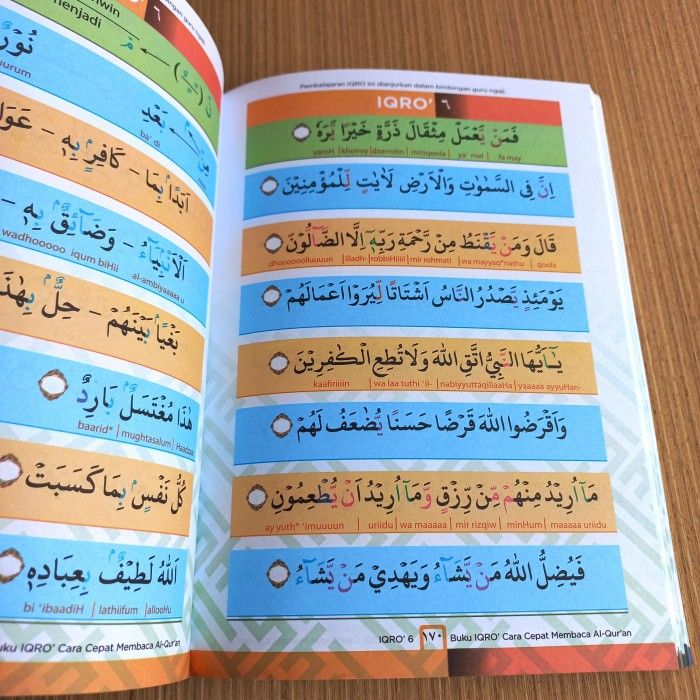 menjadi
نُوْرٌ
urum
بَعْدِ
ba' di
اَبَدًا بِمَا – كَافِرٍ بِهٖ –
اَلْاَنْبِيَآءُ – وَضَآئِقٌ بِهٖ –
wadhooooo iqum biHii al-ambiyaaaaa u
بَغْيًا بَيْنَهُمْ – حِلٌّ بِهٰذَا
هٰذَا مُغْتَسَلٌ بَارِدٌ
baarid* | mughtasalum | Haadzaa
كُلُّ نَفْسٍ بِمَا كَسَبَتْ
اَللهُ لَطِيْفٌ بِعِبَادِهٖ
bi 'ibaadiH | lathiifum | allooHu
Buku IQRO' Cara Cepat Membaca Al-Qur'an
Pembelajaran IQRO ini dianjurkan dalam bimbingan guru ngaji.
IQRO' ٦
فَمَنْ يَّعْمَلْ مِثْقَالَ ذَرَّةٍ خَيْرًا يَّرَهٗ
yaroH | khoiroy | dzarrotin | mitsqoola | ya' mal | fa may
اِنَّ فِى السَّمٰوٰتِ وَالْاَرْضِ لَاٰيٰتٍ لِّلْمُؤْمِنِيْنَ
قَالَ وَمَنْ يَّقْنَطُ مِنْ رَّحْمَةِ رَبِّهٖٓ اِلَّا الضَّآلُّوْنَ
dhoooooolluuuun | illadh- | robbiHiiiii | mir rohmati | wa mayyaq*nathu | qoola
يَوْمَئِذٍ يَّصْدُرُ النَّاسُ اَشْتَاتًا لِّيُرَوْا اَعْمَالَهُمْ
يٰٓاَيُّهَا النَّبِيُّ اتَّقِ اللهَ وَلَا تُطِعِ الْكٰفِرِيْنَ
kaafiriiiin | wa laa tuthi 'il- | nabiyyuttaqillaaHa | yaaaaa ayyuHan-
وَاَقْرَضُوا اللهَ قَرْضًا حَسَنًا يُّضٰعَفُ لَهُمْ
مَآ اُرِيْدُ مِنْهُمْ مِّنْ رِّزْقٍ وَّمَآ اُرِيْدُ اَنْ يُّطْعِمُوْنِ
ay yuth* 'imuuuun | uriidu | wa maaaaa | mir rizqiw | minHum | maaaaa uriidu
فَيُضِلُّ اللهُ مَنْ يَّشَآءُ وَيَهْدِيْ مَنْ يَّشَآءُ
IQRO' 6 ١٧٠ Buku IQRO' Cara Cepat Membaca Al-Qur'an